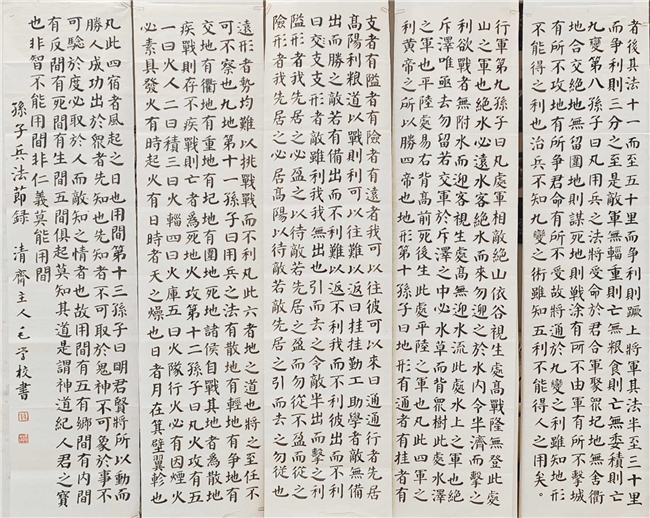 者後其法十一而至五十里而爭利則蹶上將軍其法半至三十里
而爭利則三分之至是故軍無輜重則亡無粮食則亡無委積則亡
九變第八孫子曰凡用兵之法將受命於君合軍聚眾圮地無舍衢
地合交絶地無留圍地則謀死地則戰涂有所不由軍有所不擊城
有所不攻地有所不爭君命有所不受故將通於九變之利雖知地形
不能得之利也治兵不知九變之術雖知五利不能得人之用矣。
行軍第九孫子曰凡處軍相敵絶山依谷視生處髙戰隆無登此處
山之軍也絶水必遠水客絶水而來勿迎之於水内令半濟而擊之
利欲戰者無附水而迎客視生處髙無迎水流此處水上之軍也絶
斥澤唯亟去勿留若交軍於斥澤之中必水草而背眾樹此處水澤
之軍也平陸處易右背髙前死後生此處平陸之軍也凡此四軍之
利黄帝之所以勝四帝也地形第十孫子曰地形有通者有挂者有
支者有隘者有險者有遠者我可以往彼可以來曰通通行者先居
髙陽利粮道以戰則利可以往難以返曰挂挂勤工助學者敵無備
出而勝之敵若有備出而不利難以返不利我而不利彼出而不利
曰交支支形者敵雖利我我無出也引而去之令敵半出而擊之利
隘形者我先居之必盈之以待敵若敵先居之盈而勿從不盈而從之
險形者我先居之必居髙陽以待敵若敵先居之引而去之勿從也
遠形者勢均難以挑戰戰而不利凡此六者地之道也將之至任不
可不察也九地第十一孫子曰用兵之法有散地有輕地有爭地有
交地有衢地有重地有圮地有圍地死地諸侯自戰其地者為散地
疾戰則存不疾戰則亡者為死地火攻第十二孫子曰凡火攻有五
一曰火人二曰火積三曰火輜四曰火庫五曰火隊行火必有因煙火
必素具發火有時起火有日時者天之燥也日者月在箕壁翼軫也
凡此四宿者風起之日也用間第十三孫子曰明君賢將所以動而
勝人成功出於眾者先知也先知者不可取於鬼神不可象於事不
可驗於度必取於人而敵知之情者也故用間有五有鄉間有内間
有反間有死間有生間五間俱起莫知其道是謂神道紀人君之寶
也非智不能用間非仁義莫能用間
孫子兵法節録 清齋主人毛学校書